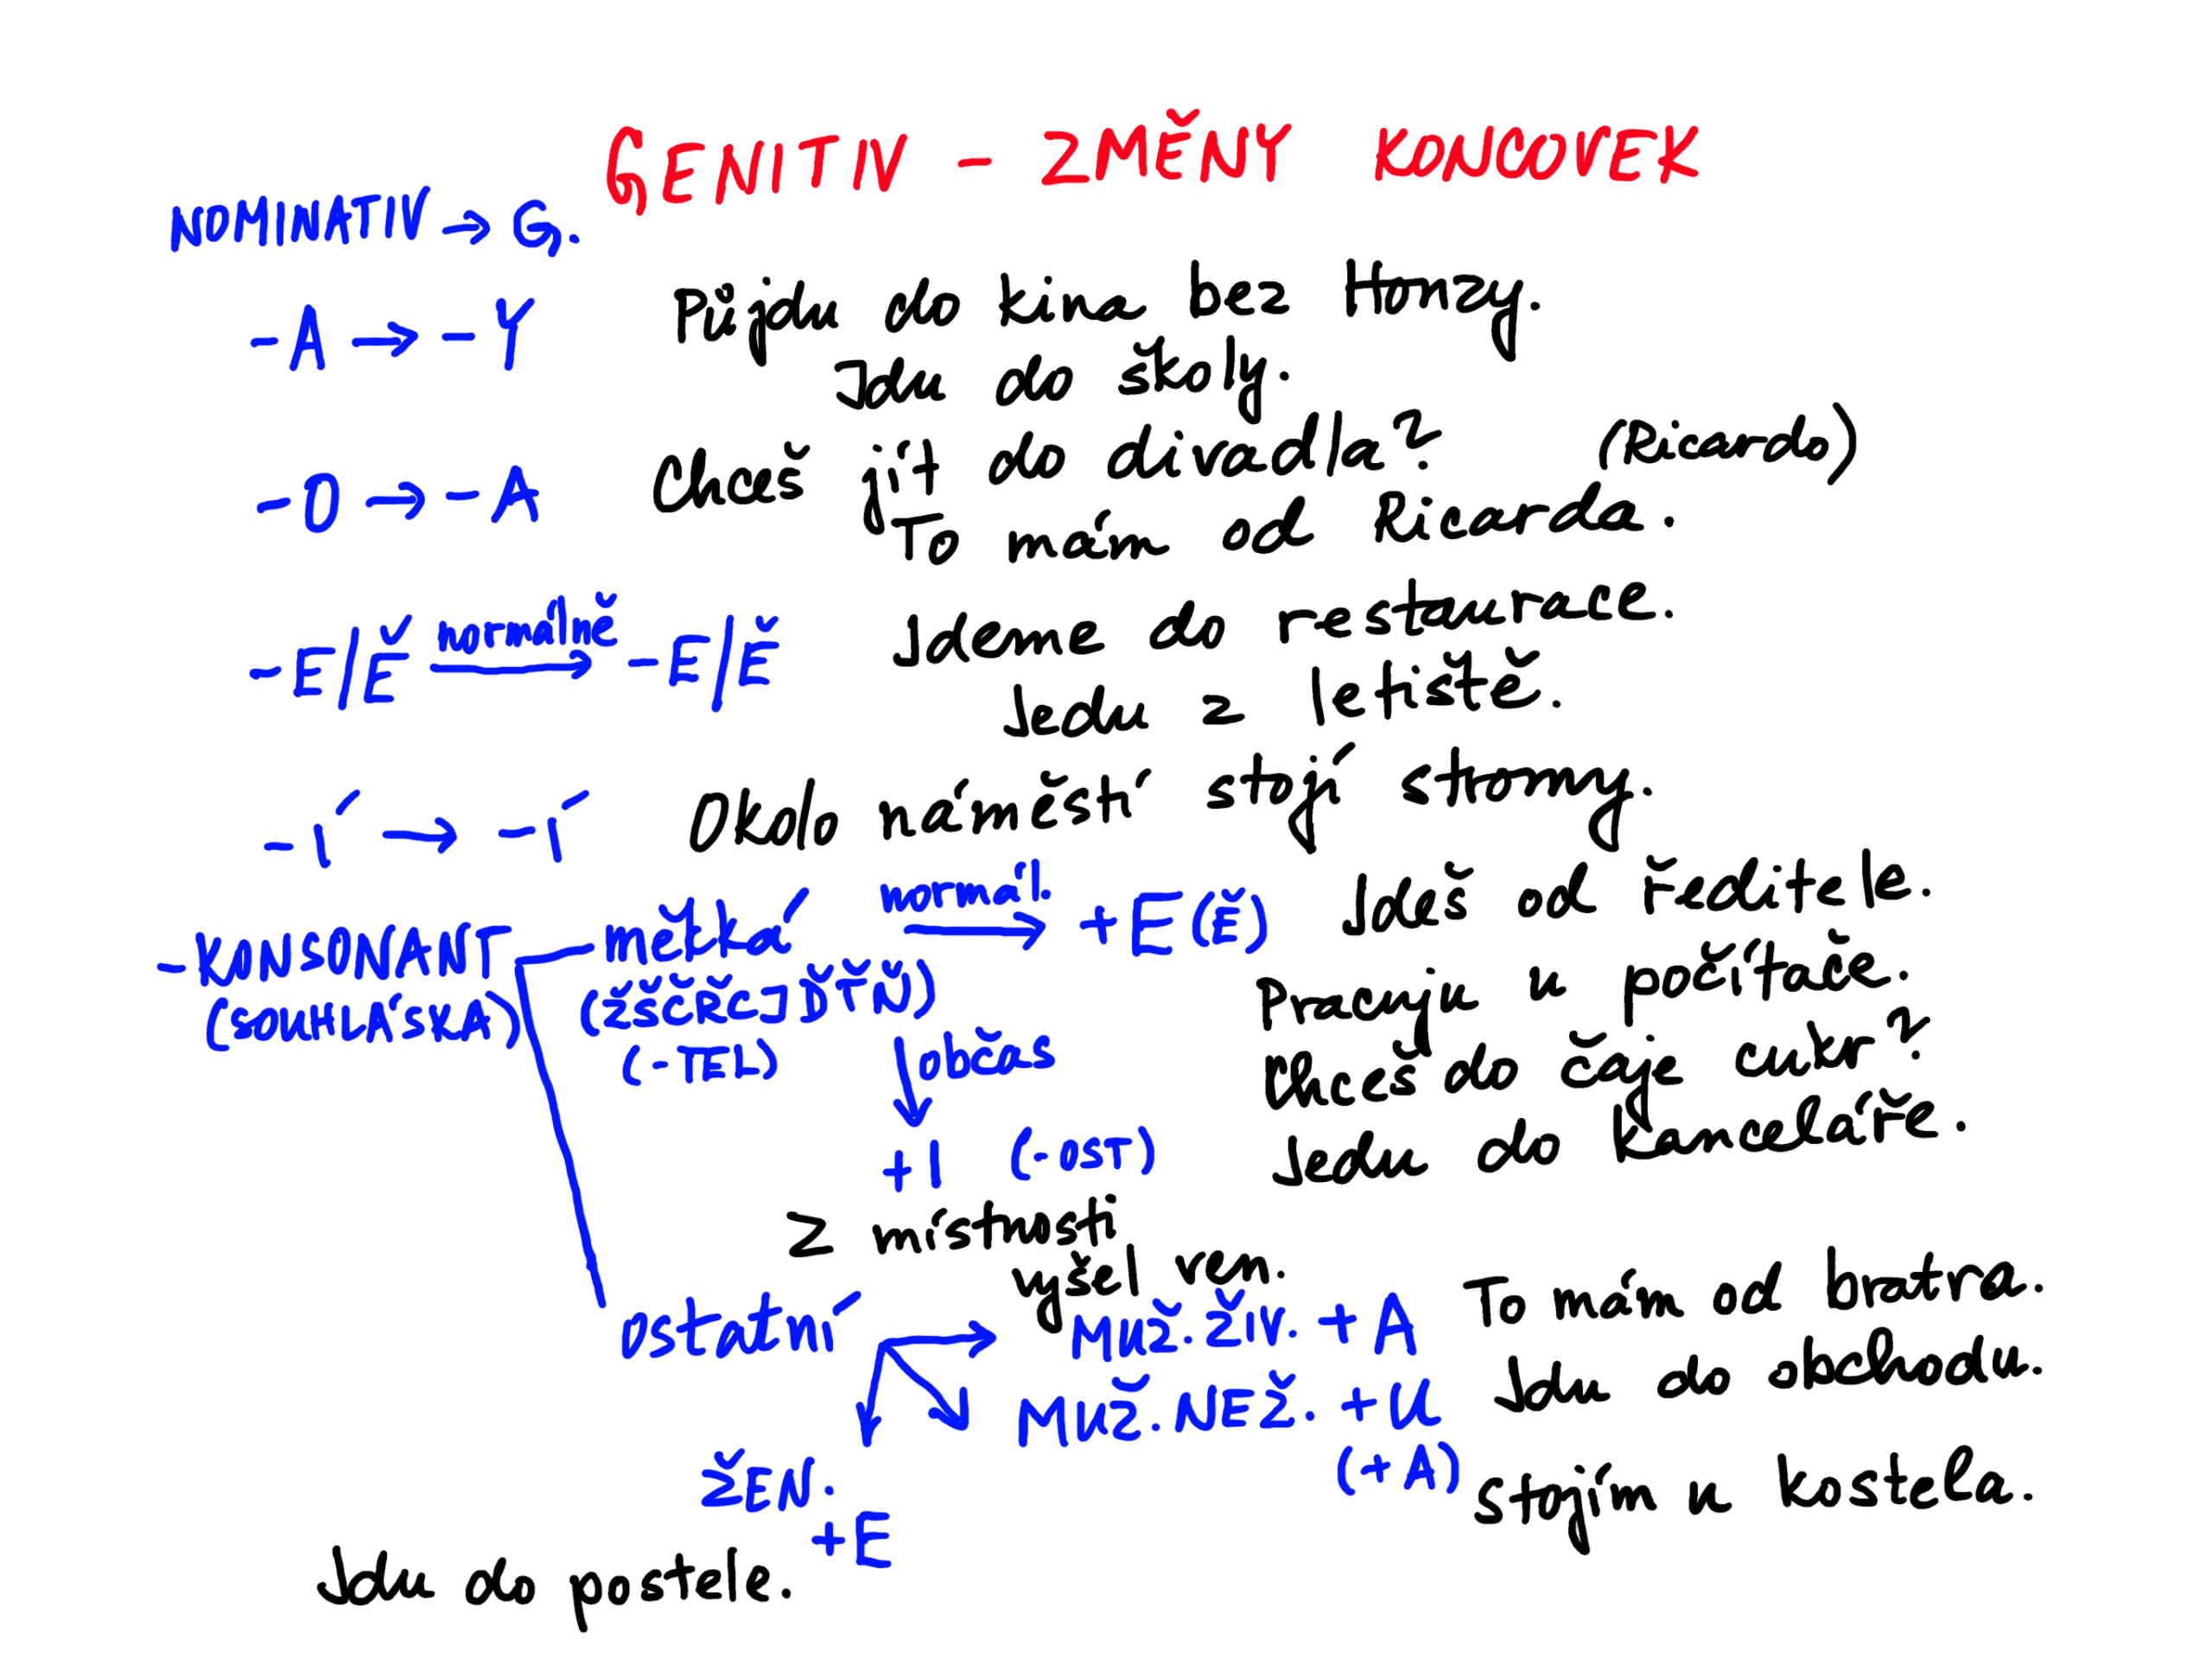 GENITIV - ZMĚNY KONCOVEK
NOMINATIV → G.
-A → -Y
Půjdu do kina bez Honzy.
Jdu do školy.
-O → -A
Chceš jít do divadla? (Ricardo)
To mám od Ricarda.
-E/Ě normálně → -E/Ě
Jdeme do restaurace.
Jedu z letiště.
-Í → -Í
Okolo náměstí stojí stromy.
-KONSONANT
(SOUHLÁSKA)
měkká normál. → +E(Ě)
(ŽŠČŘCJĎŤŇ)
(-TEL)
Jdeš od ředitele.
Pracuju u počítače.
Chceš do čaje cukr?
Jedu do kanceláře.
občas
+I (-OST)
Z místnosti
vyšel ven.
ostatní
MUŽ. ŽIV. +A
To mám od bratra.
MUŽ. NEŽ. +U
Jdu do obchodu.
(+A)
Stojím u kostela.
ŽEN.
+E
Jdu do postele.